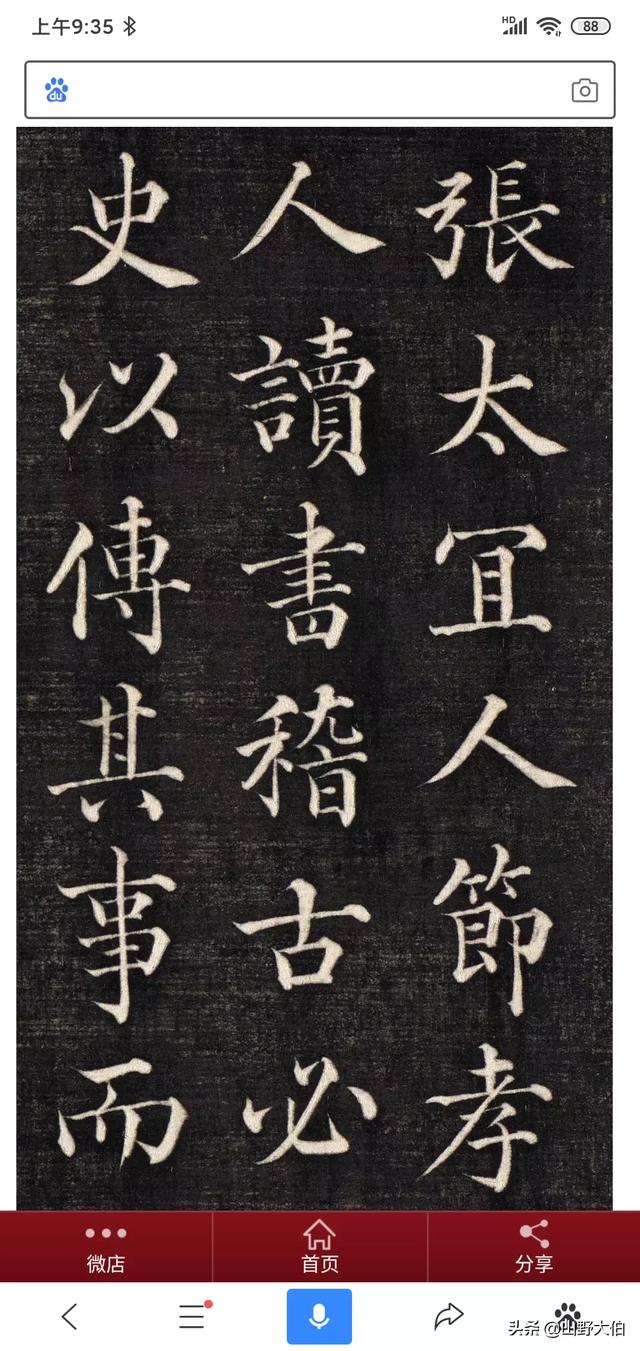 上午9:35
HD
88
du
張太冝人節孝
人讀書稽古必
史以傳其事而
微店
首页
分享
头条 @山野大伯